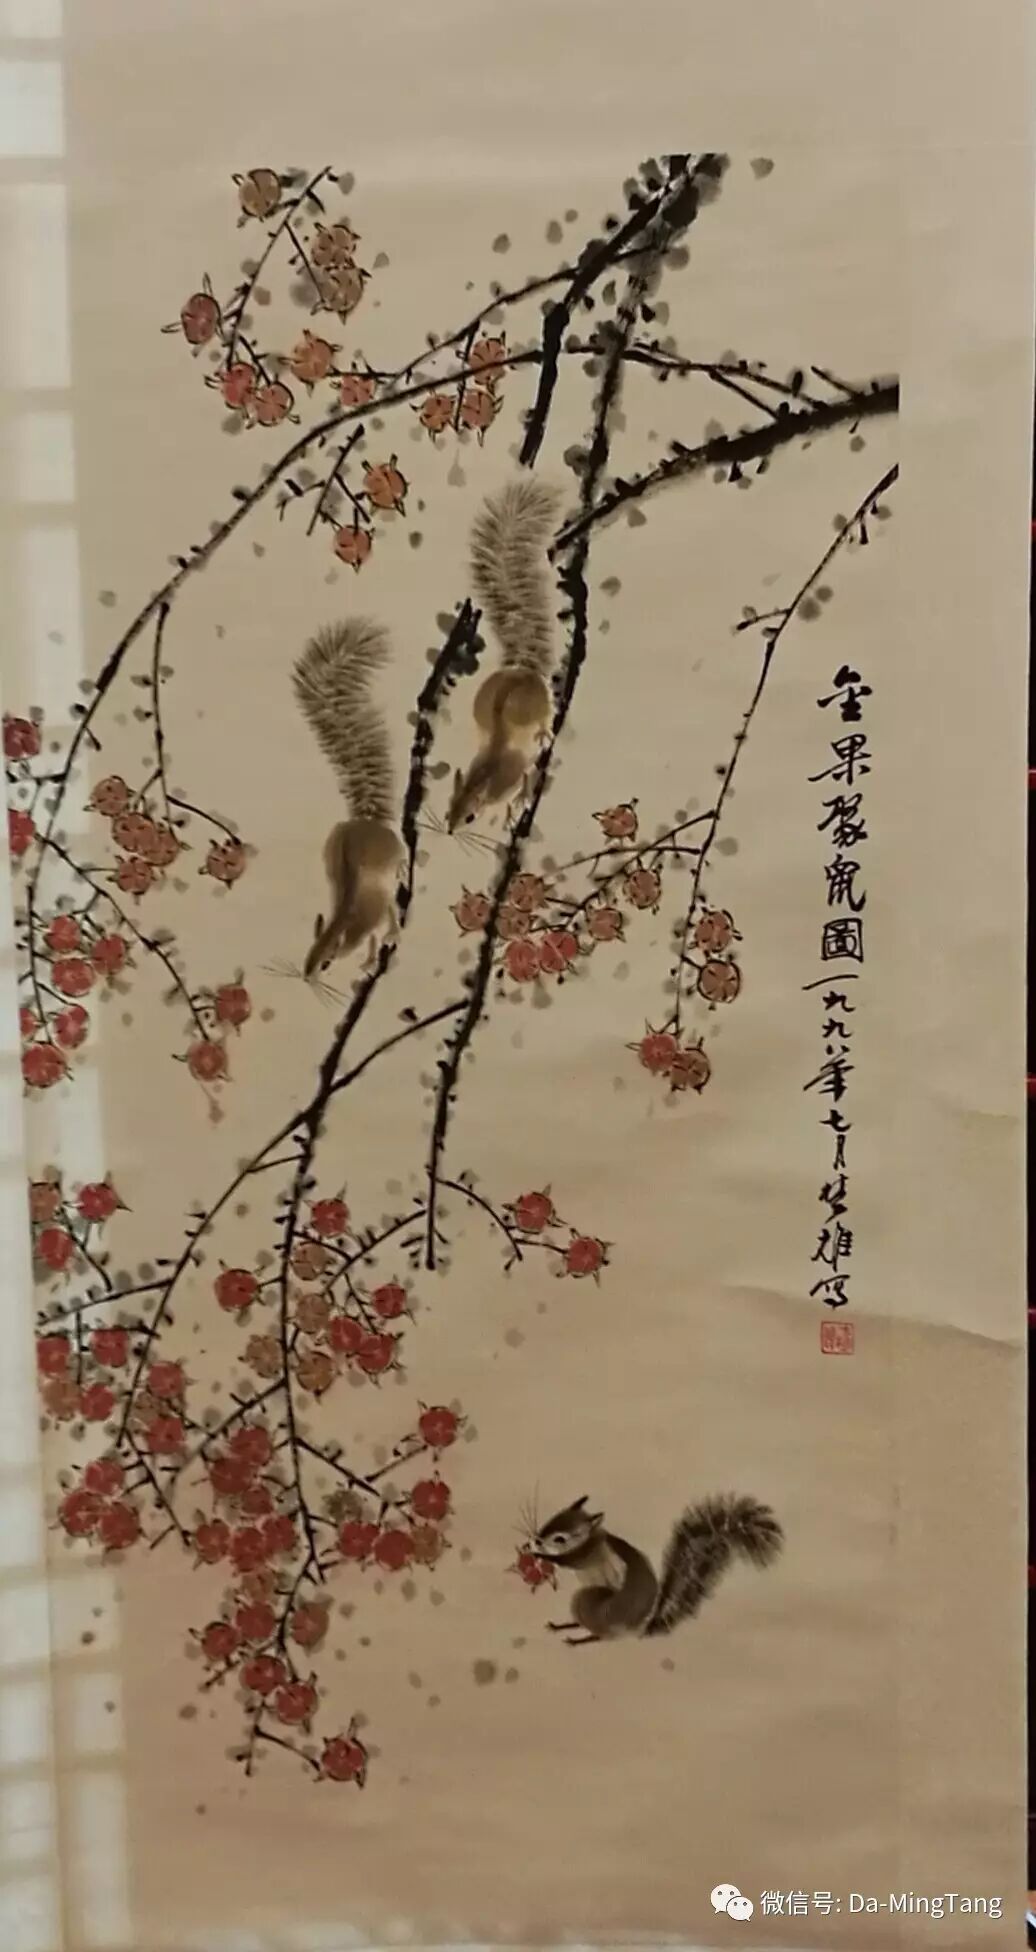 金果聚鼠圖一九九八年七月楚雄写
微信号: Da-MingTang